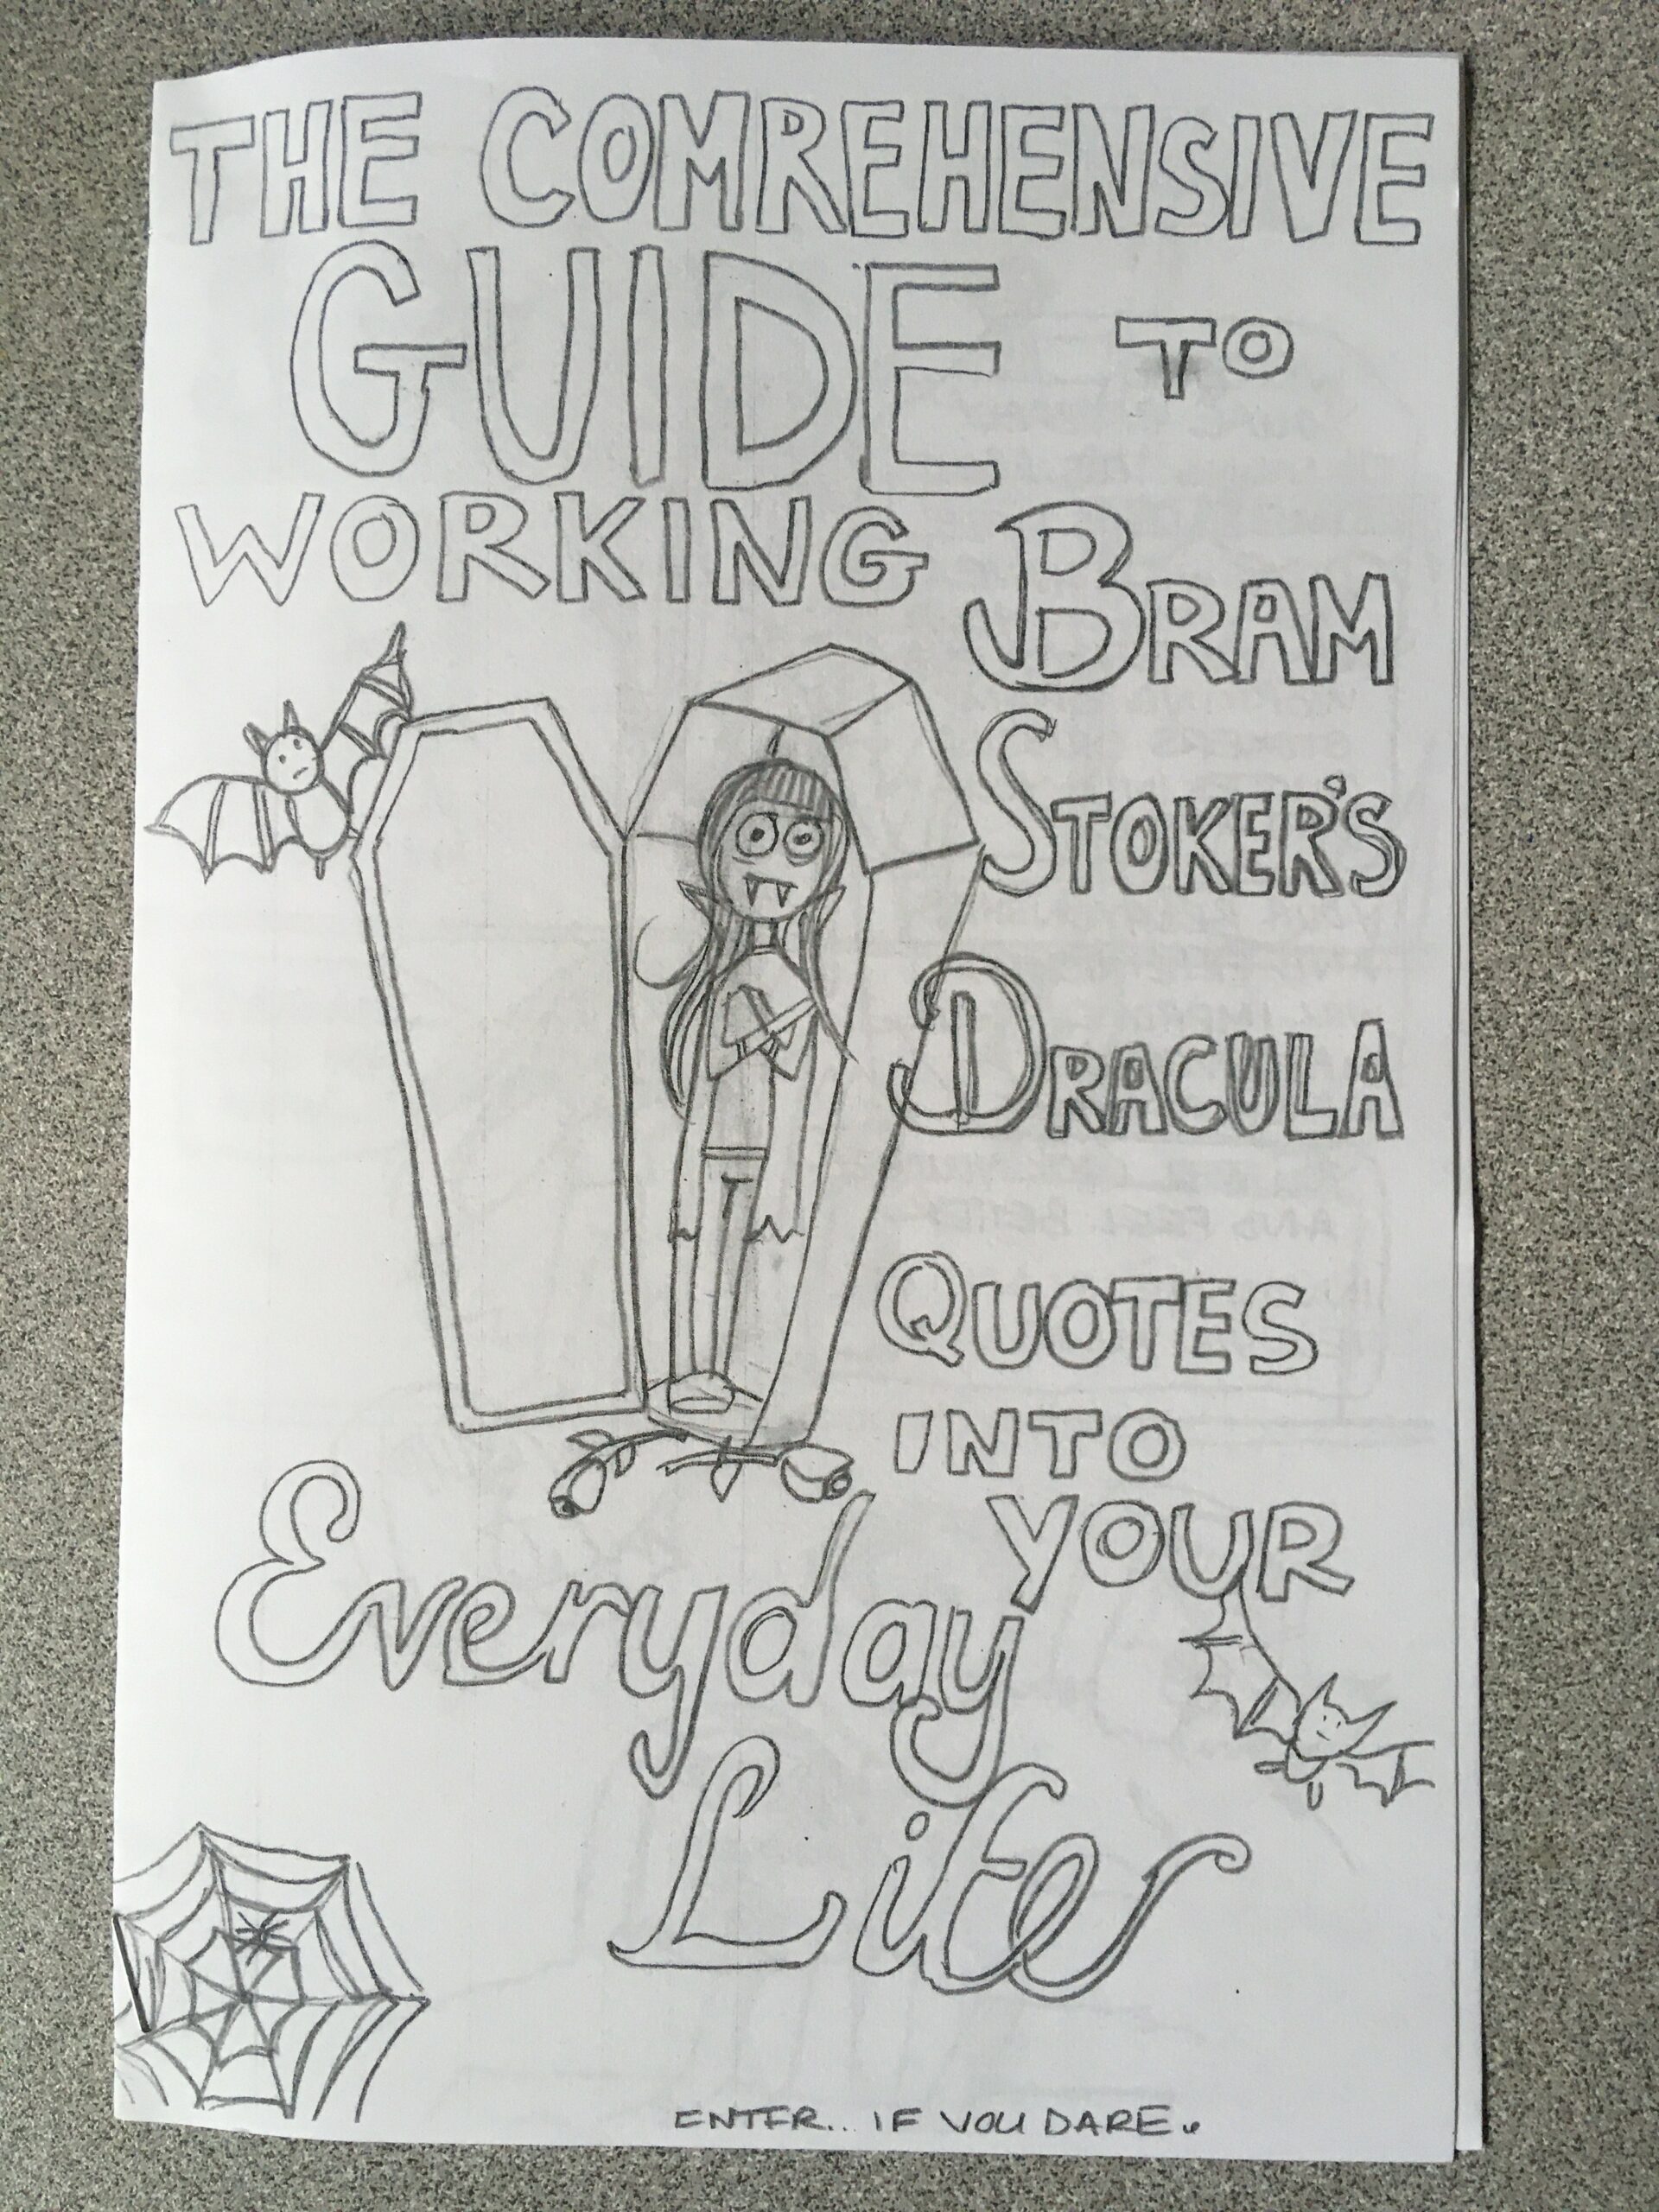 THE COMREHENSIVE
GUIDE TO
WORKING BRAM
STOKER'S
DRACULA
QUOTES
INTO
YOUR
Everyday
Life
ENTER... IF YOU DARE.